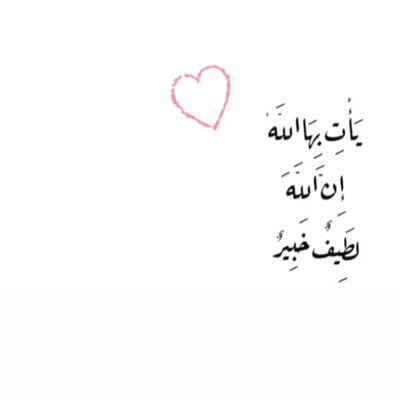 يَأْتِ بِهَا اللَّهُ
إِنَّ اللَّهَ
لَطِيفٌ خَبِيرٌ